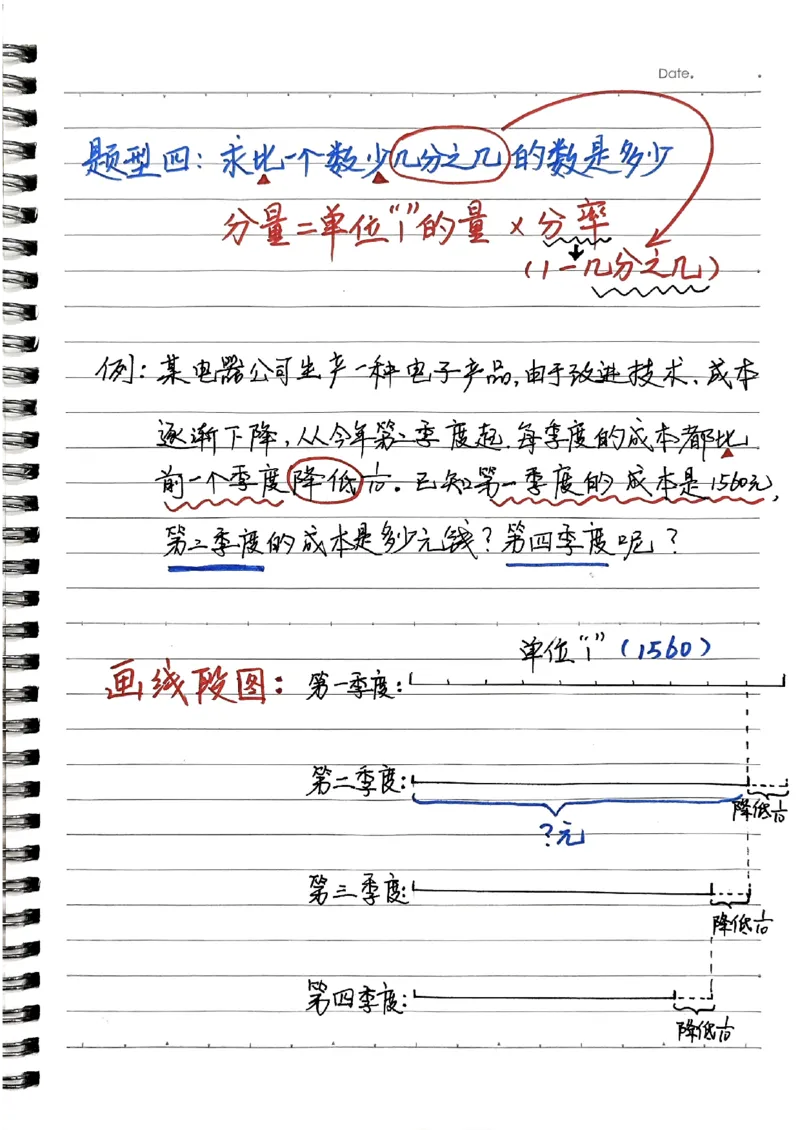 Date.
题型四：求比一个数少几分之几的数是多少
分量=单位“1”的量×分率
(1-几分之几)
例：某电器公司生产一种电子产品,由于改进技术、成本
逐渐下降,从今年第二季度起.每季度的成本都比
前一个季度降低1/10。已知第一季度的成本是1560元,
第二季度的成本是多少元钱?第四季度呢?
单位“1”(1560)
画线段图:第一季度:
第二季度:
降低1/10
?元
第三季度:
降低1/10
第四季度:
降低1/10